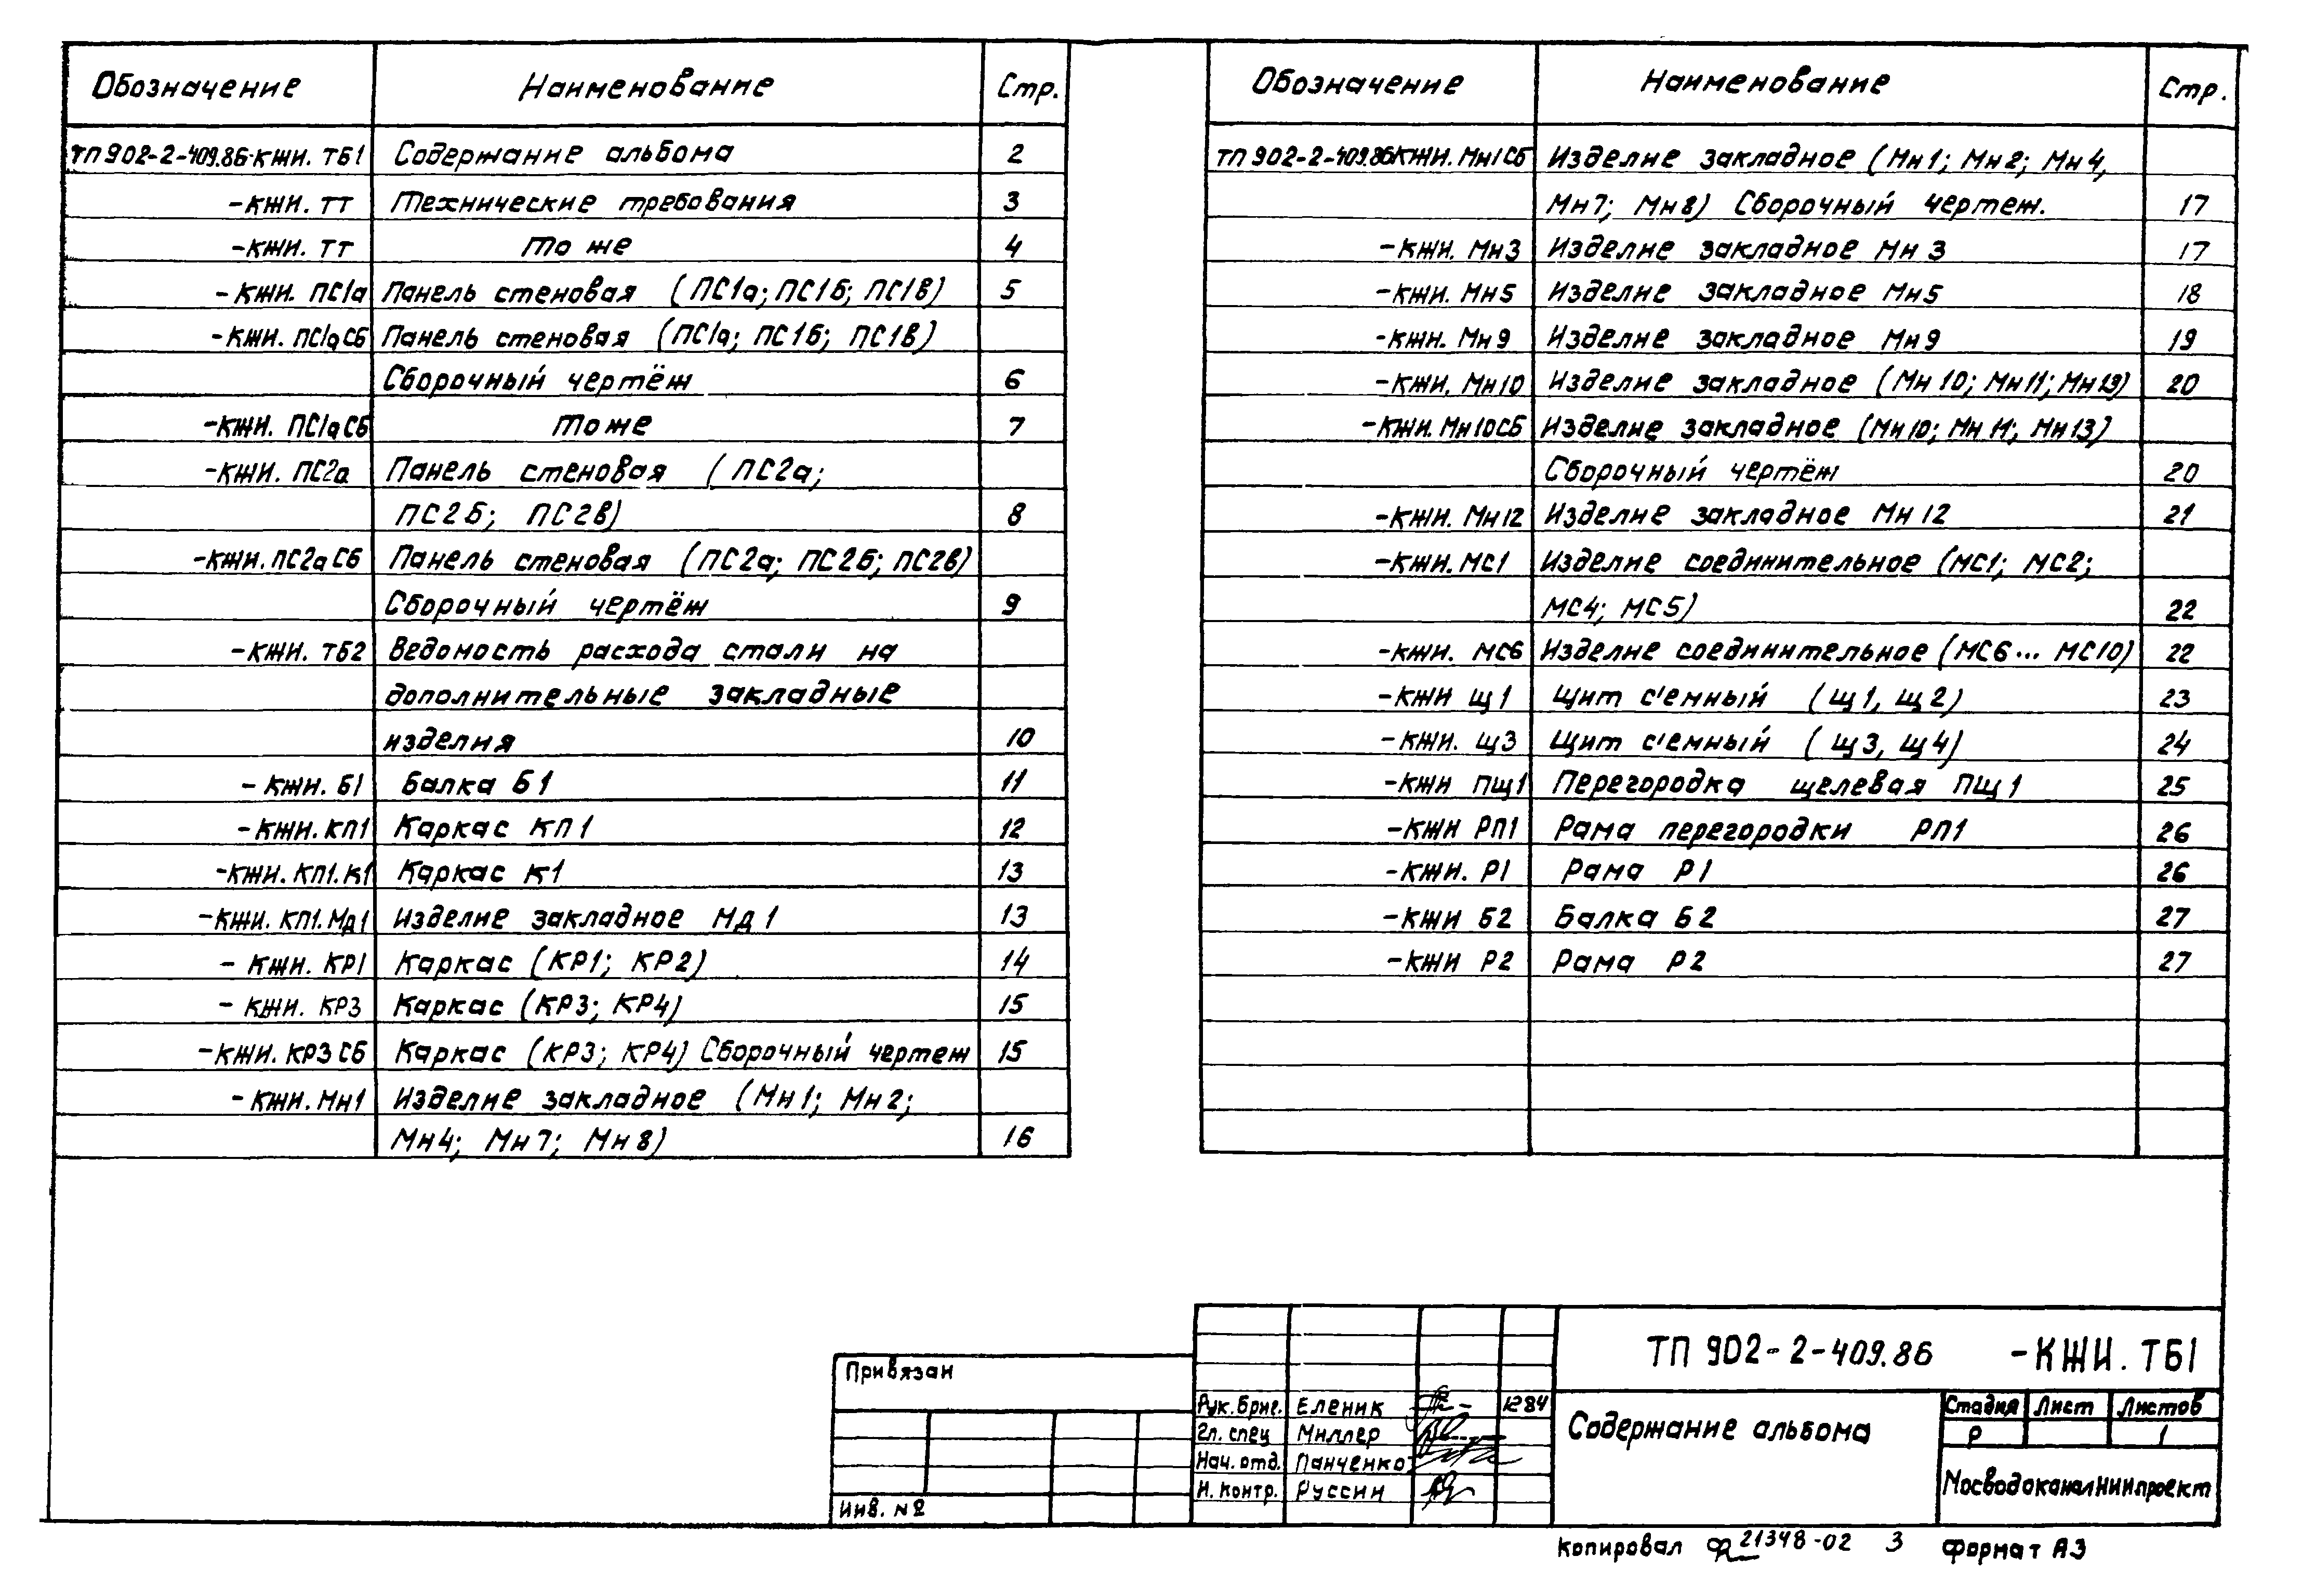 Обозначение Наименование Стр.
ТП 902-2-409.86-КЖИ. ТБ1 Содержание альбома 2
-КЖИ. ТТ Технические требования 3
-КЖИ. ТТ То же 4
-КЖИ. ПС1а Панель стеновая (ПС1а; ПС1б; ПС1в) 5
-КЖИ. ПС1аСб Панель стеновая (ПС1а; ПС1б; ПС1в)
Сборочный чертёж 6
-КЖИ. ПС1аСб То же 7
-КЖИ. ПС2а Панель стеновая (ПС2а;
ПС2б; ПС2в) 8
-КЖИ. ПС2аСб Панель стеновая (ПС2а; ПС2б; ПС2в)
Сборочный чертёж 9
-КЖИ. ТБ2 Ведомость расхода стали на
дополнительные закладные
изделия 10
-КЖИ. Б1 Балка Б1 11
-КЖИ. КП1 Каркас КП1 12
-КЖИ. КП1. К1 Каркас К1 13
-КЖИ. КП1. Мд1 Изделие закладное Мд1 13
-КЖИ. КР1 Каркас (КР1; КР2) 14
-КЖИ. КР3 Каркас (КР3; КР4) 15
-КЖИ. КР3 Сб Каркас (КР3; КР4) Сборочный чертеж 15
-КЖИ. Мн1 Изделие закладное (Мн1; Мн2;
Мн4; Мн7; Мн8) 16
Обозначение Наименование Стр.
ТП 902-2-409.86КЖИ. Мн1Сб Изделие закладное (Мн1; Мн2; Мн4,
Мн7; Мн8) Сборочный чертеж. 17
-КЖИ. Мн3 Изделие закладное Мн3 17
-КЖИ. Мн5 Изделие закладное Мн5 18
-КЖИ. Мн9 Изделие закладное Мн9 19
-КЖИ. Мн10 Изделие закладное (Мн10; Мн11; Мн13) 20
-КЖИ. Мн10Сб Изделие закладное (Мн10; Мн11; Мн13)
Сборочный чертёж 20
-КЖИ. Мн12 Изделие закладное Мн12 21
-КЖИ. МС1 Изделие соединительное (МС1; МС2;
МС4; МС5) 22
-КЖИ. МС6 Изделие соединительное (МС6... МС10) 22
-КЖИ Щ1 Щит с'емный (Щ1, Щ2) 23
-КЖИ. Щ3 Щит с'емный (Щ3, Щ4) 24
-КЖИ ПЩ1 Перегородка щелевая ПЩ1 25
-КЖИ РП1 Рама перегородки РП1 26
-КЖИ. Р1 Рама Р1 26
-КЖИ Б2 Балка Б2 27
-КЖИ Р2 Рама Р2 27
Привязан
Инв. №
Рук. бриг. Еленик 1284
Гл. спец Миллер
Нач. отд. Панченко
Н. контр. Руссин
ТП 902-2-409.86 -КЖИ. ТБ1
Содержание альбома
Стадия Лист Листов
Р 1
МосводоканалНИИпроект
Копировал 21348-02 3 Формат А3